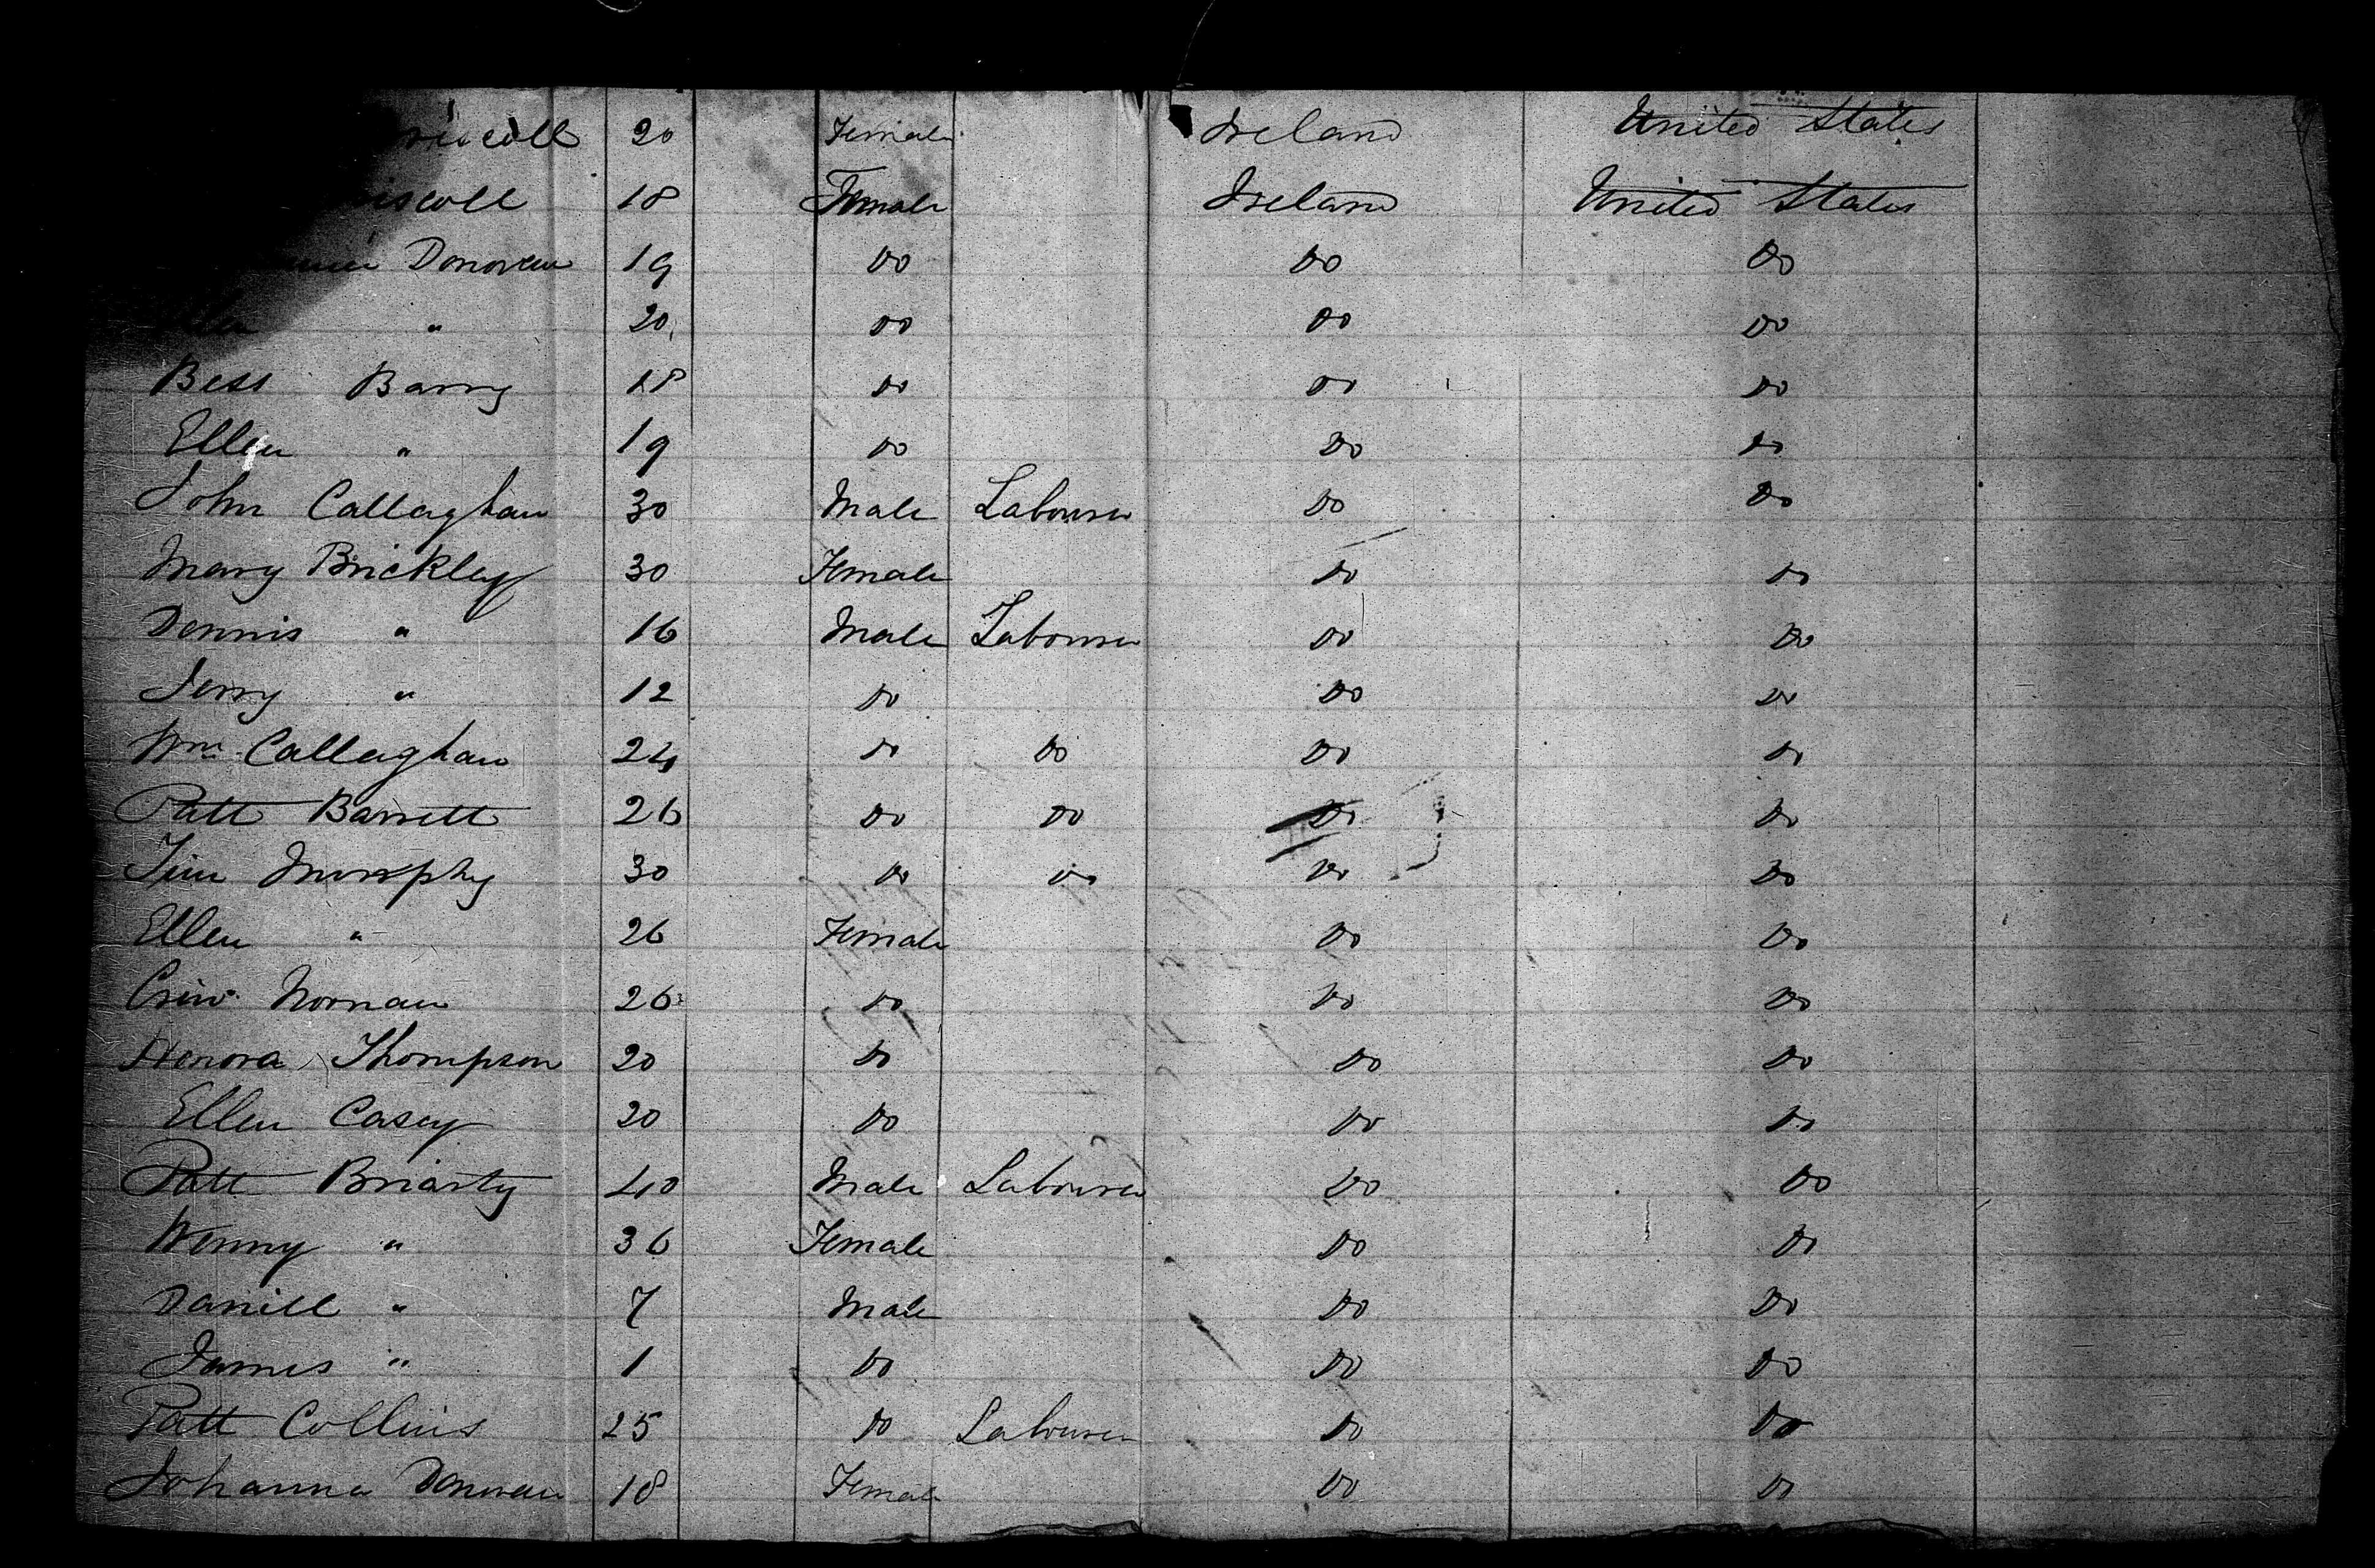 20 Female Ireland United States
18 Female Ireland United States
Donovan 19 Do Do Do
" 20 Do Do Do
Bess Barry 18 Do Do Do
Ellen " 19 Do Do Do
John Callaghan 30 Male Labourer Do Do
Mary Brickley 30 Female Do Do
Dennis " 16 Male Labourer Do Do
Jerry " 12 Do Do Do
Wm Callaghan 24 Do Do Do Do
Patt Barrett 26 Do Do Do Do
Tim Murphy 30 Do Do Do Do
Ellen " 26 Female Do Do
Noonan 26 Do Do Do
Henora Thompson 20 Do Do Do
Ellen Casey 20 Do Do Do
Patt Briarty 40 Male Labourer Do Do
" 36 Female Do Do
Daniell " 7 Male Do Do
James " 1 Do Do Do
Patt Collins 25 Do Labourer Do Do
Johanna Donovan 18 Female Do Do